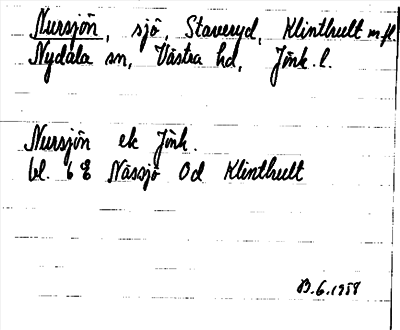 Nursjön, sjö, Staveryd, Klinthult m.fl.
Nydala sn, Västra hd, Jönk. l.
Nursjön ek Jönk.
bl. 6 E Nässjö Od Klinthult
6.1958